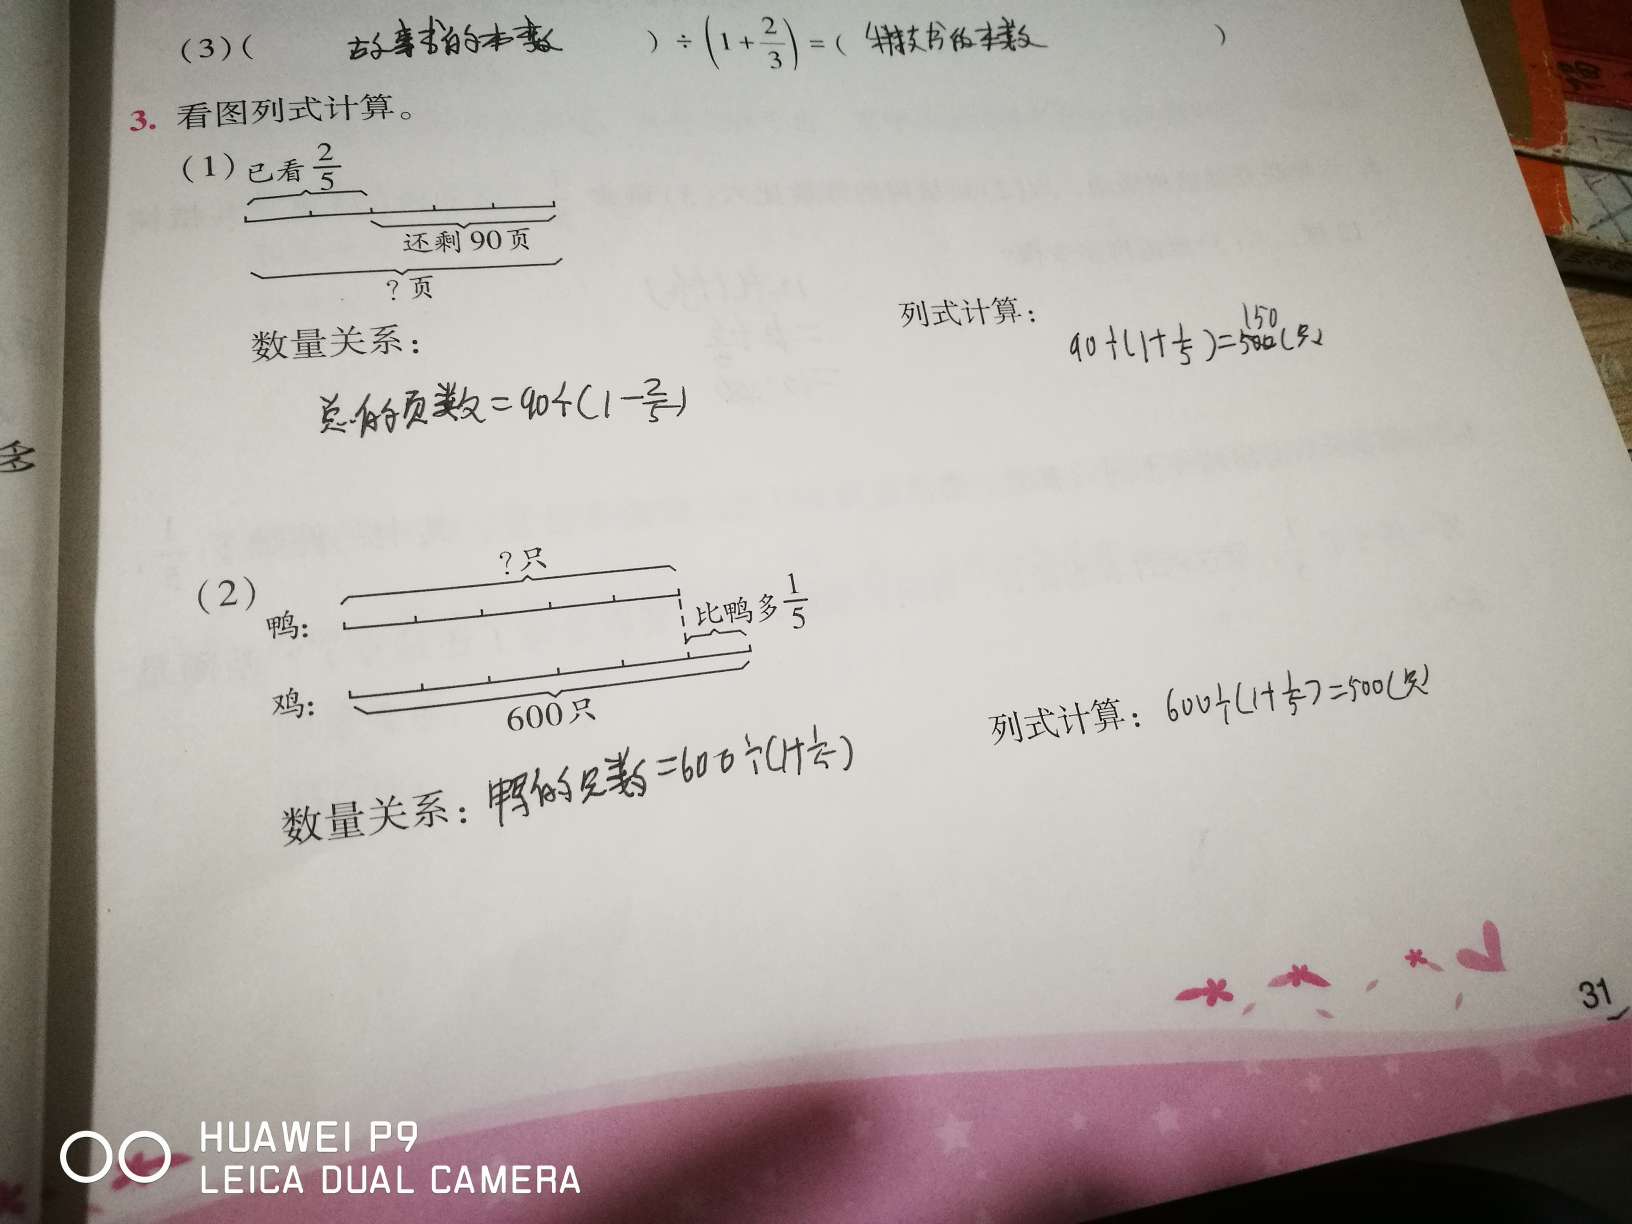 (3)( 故事书的本数 )÷(1+2/3)=( 科技书的本数 )
3. 看图列式计算。
(1) 已看2/5
还剩90页
?页
数量关系:
总的页数=90÷(1-2/5)
列式计算:
90÷(1+1/5)=150(只)
多
(2)
?只
鸭:
比鸭多1/5
鸡:
600只
数量关系: 鸭的只数=600÷(1+1/5)
列式计算: 600÷(1+1/5)=500(只)
31
HUAWEI P9
LEICA DUAL CAMERA